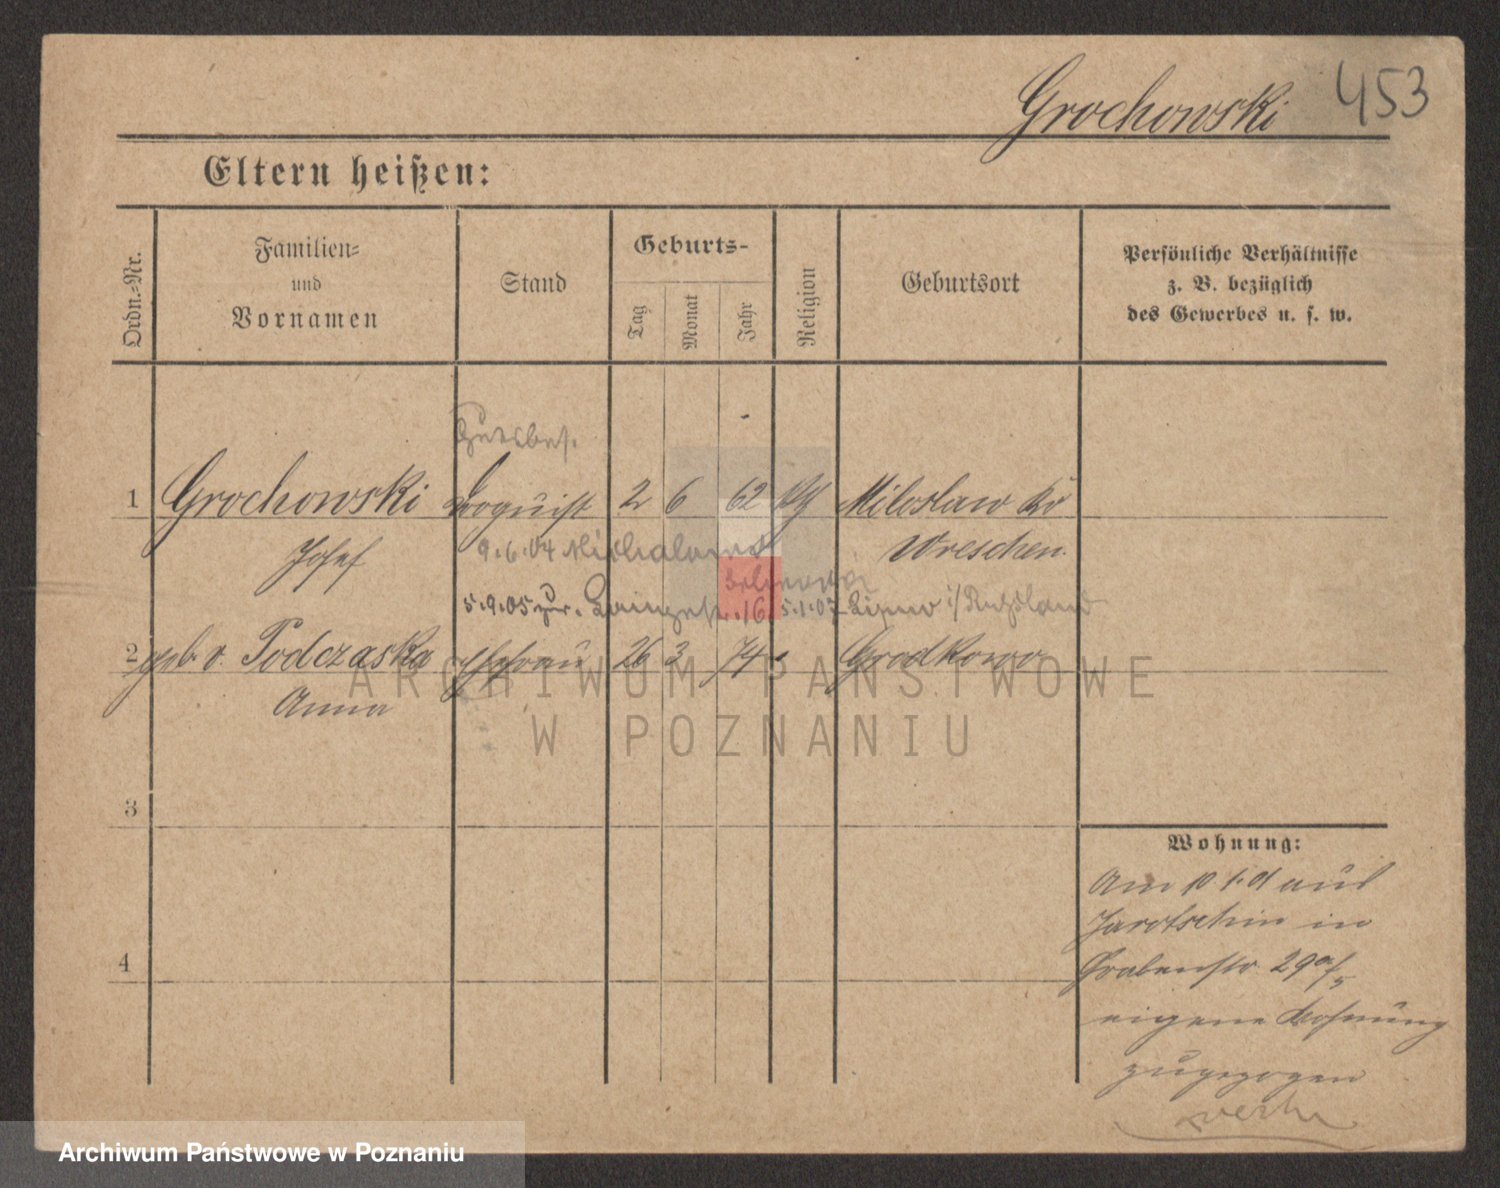 Grochowski 453
Eltern heißen:
Ordn.-Nr.
Familien-
und
Vornamen
Stand
Geburts-
Tag
Monat
Jahr
Religion
Geburtsort
Persönliche Verhältnisse
z. B. bezüglich
des Gewerbes u. s. w.
Gutsbes.
1 Grochowski 2 6 62 Miloslaw Kr
Josef 9.6.04 Wreschen
5.9.05 zur. 16. 5.1.07 Lipno i/Russland
2 geb. v. Podczaska Ehefrau 26 3 74 Grodkowo
Anna
ARCHIWUM PAŃSTWOWE
W POZNANIU
3
4
Wohnung:
Am 10 aus
Jarotschin in
Grabenstr. 29
eigene Wohnung
zugezogen
Archiwum Państwowe w Poznaniu